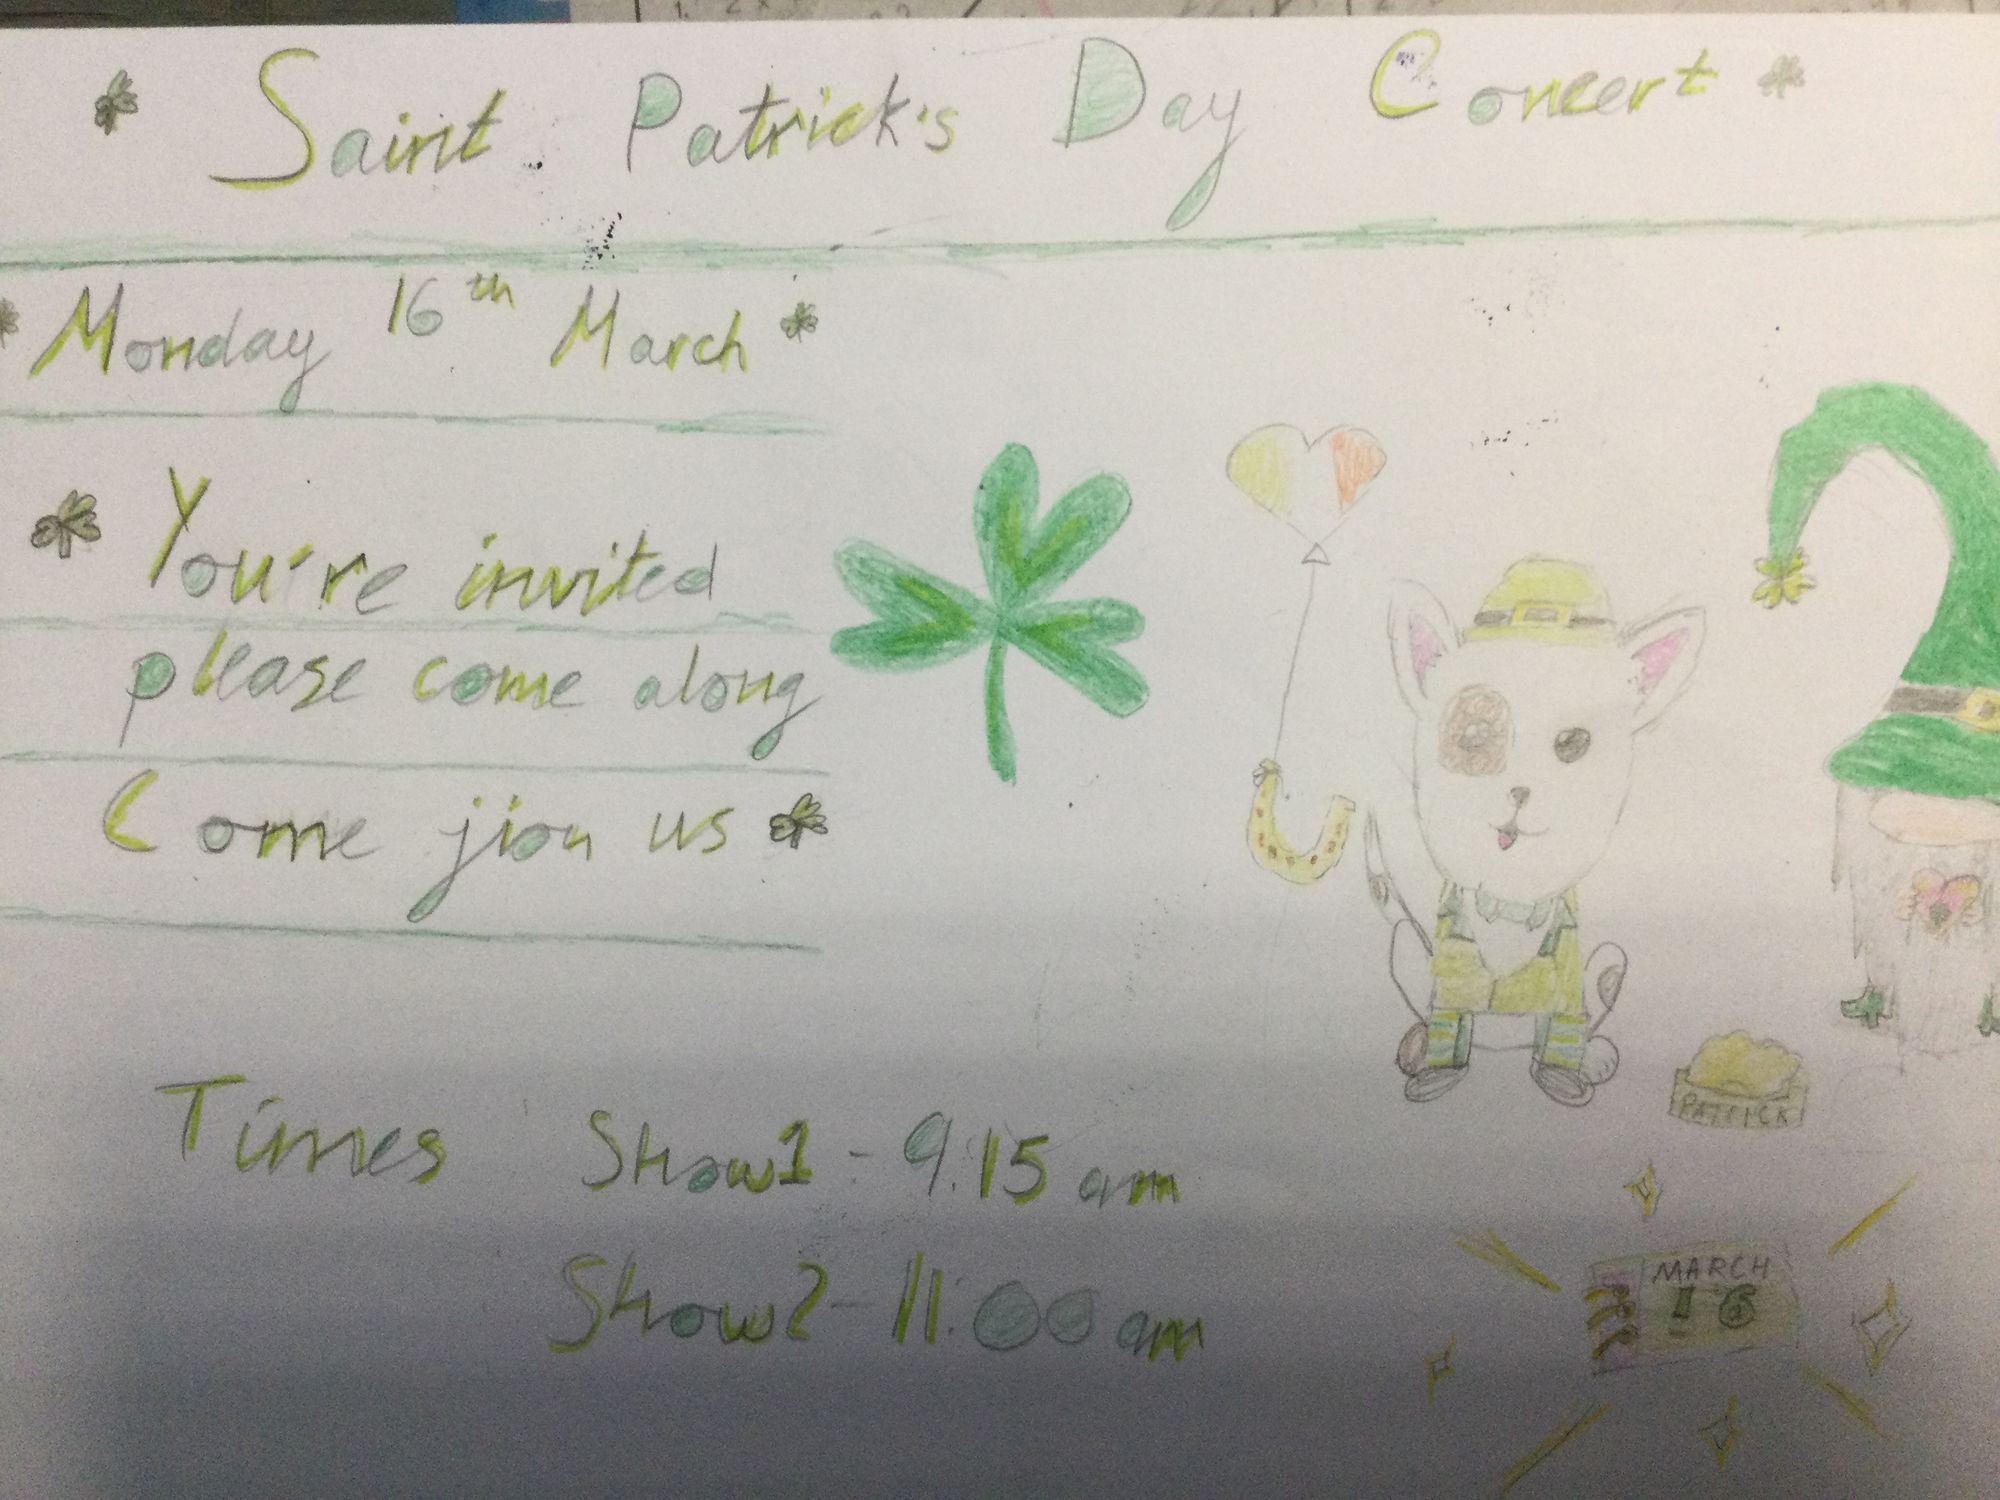 Saint Patrick's Day Concert
Monday 16th March
You're invited
please come along
Come jion us
PATRICK
Times Show1 - 9.15 am
Show2 - 11:00 am
MARCH
16